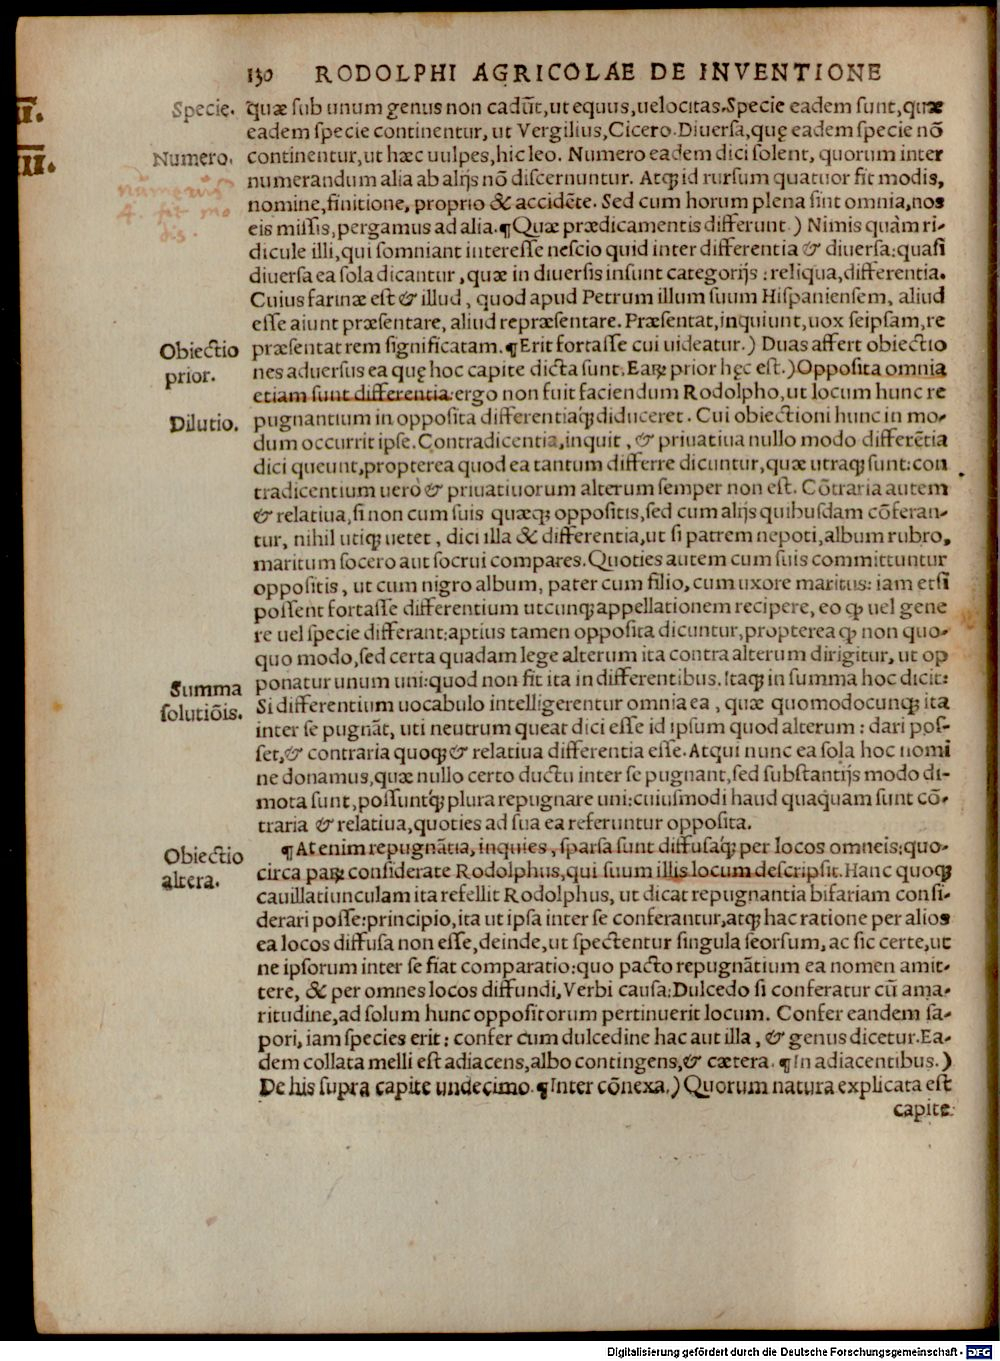 130 RODOLPHI AGRICOLAE DE INVENTIONE
Specie. quæ sub unum genus non cadũt, ut equus, uelocitas. Specie eadem sunt, quæ
eadem specie continentur, ut Vergilius, Cicero. Diuersa, quę eadem specie nõ
Numero. continentur, ut hæc uulpes, hic leo. Numero eadem dici solent, quorum inter
numerandum alia ab alijs nõ discernuntur. Atq; id rursum quatuor fit modis,
numerus
4. fit mo
dis.
nomine, finitione, proprio & accidẽte. Sed cum horum plena sint omnia, nos
eis missis, pergamus ad alia. ¶ Quæ prædicamentis differunt.) Nimis quàm ri-
dicule illi, qui somniant interesse nescio quid inter differentia & diuersa: quasi
diuersa ea sola dicantur, quæ in diuersis insunt categorijs: reliqua, differentia.
Cuius farinæ est & illud, quod apud Petrum illum suum Hispaniensem, aliud
esse aiunt præsentare, aliud repræsentare. Præsentat, inquiunt, uox seipsam, re
Obiectio
prior.
præsentat rem significatam. ¶ Erit fortasse cui uideatur.) Duas affert obiectio
nes aduersus ea quę hoc capite dicta sunt. Earum prior hęc est.) Opposita omnia
etiam sunt differentia: ergo non fuit faciendum Rodolpho, ut locum hunc re
Dilutio. pugnantium in opposita differentiaq; diduceret. Cui obiectioni hunc in mo-
dum occurrit ipse. Contradicentia, inquit, & priuatiua nullo modo differẽtia
dici queunt, propterea quod ea tantum differre dicuntur, quæ utraq; sunt: con
tradicentium uerò & priuatiuorum alterum semper non est. Cõtraria autem
& relatiua, si non cum suis quæq; oppositis, sed cum alijs quibusdam cõferan-
tur, nihil utiq; uetet, dici illa & differentia, ut si patrem nepoti, album rubro,
maritum socero aut socrui compares. Quoties autem cum suis committuntur
oppositis, ut cum nigro album, pater cum filio, cum uxore maritus: iam etsi
possent fortasse differentium utcunq; appellationem recipere, eo ꝙ uel gene
re uel specie differant: aptius tamen opposita dicuntur, propterea ꝙ non quo-
quo modo, sed certa quadam lege alterum ita contra alterum dirigitur, ut op
Summa
solutiõis.
ponatur unum uni: quod non fit ita in differentibus. Itaq; in summa hoc dicit:
Si differentium uocabulo intelligerentur omnia ea, quæ quomodocunq; ita
inter se pugnãt, uti neutrum queat dici esse id ipsum quod alterum: dari pos-
set, & contraria quoq; & relatiua differentia esse. Atqui nunc ea sola hoc nomi
ne donamus, quæ nullo certo ductu inter se pugnant, sed substantijs modo di-
mota sunt, possuntq́; plura repugnare uni: cuiusmodi haud quaquam sunt cõ-
traria & relatiua, quoties ad sua ea referuntur opposita.
Obiectio
altera.
¶ At enim repugnãtia, inquies, sparsa sunt diffusaq́; per locos omneis: quo-
circa parum considerate Rodolphus, qui suum illis locum descripsit. Hanc quoq;
cauillatiunculam ita refellit Rodolphus, ut dicat repugnantia bifariam consi-
derari posse: principio, ita ut ipsa inter se conferantur, atq; hac ratione per alios
ea locos diffusa non esse, deinde, ut spectentur singula seorsum, ac sic certe, ut
ne ipsorum inter se fiat comparatio: quo pacto repugnãtium ea nomen amit-
tere, & per omnes locos diffundi, Verbi causa: Dulcedo si conferatur cũ ama-
ritudine, ad solum hunc oppositorum pertinuerit locum. Confer eandem sa-
pori, iam species erit: confer cum dulcedine hac aut illa, & genus dicetur. Ea-
dem collata melli est adiacens, albo contingens, & cætera. ¶ In adiacentibus.)
De his supra capite undecimo. ¶ Inter cõnexa.) Quorum natura explicata est
capite.
Digitalisierung gefördert durch die Deutsche Forschungsgemeinschaft - DFG